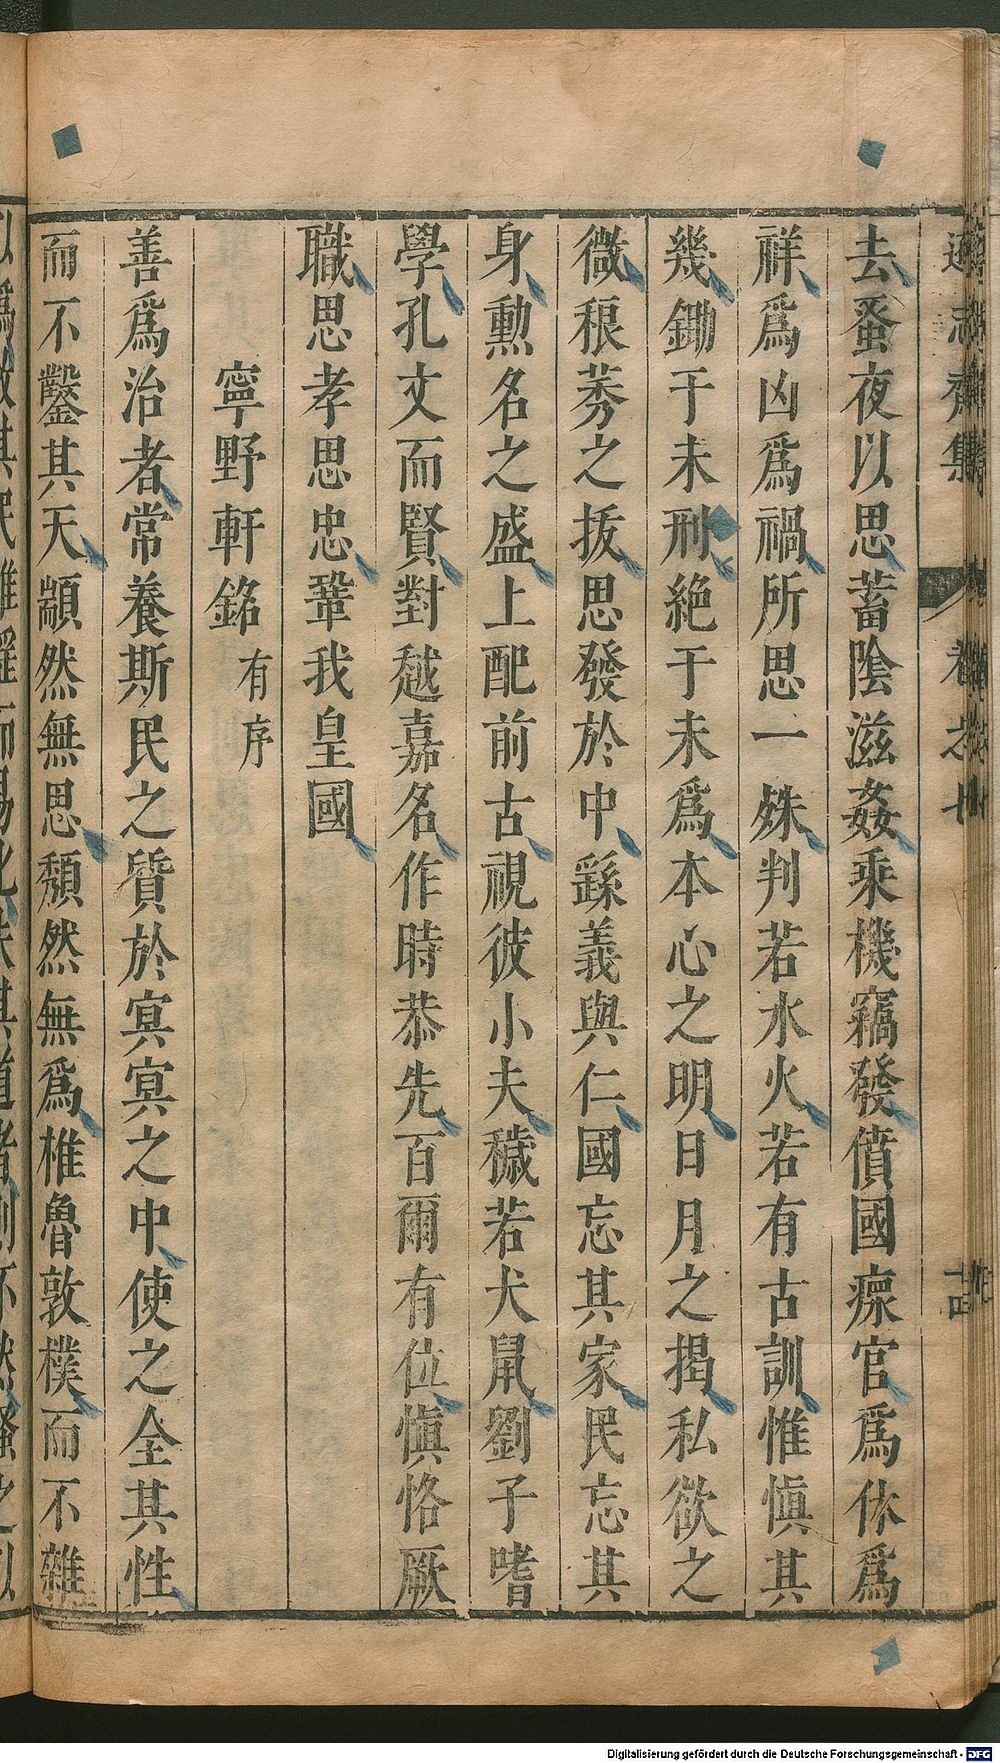 遜志齋集 卷之七
去蚤夜以思蓄陰滋姦乘機竊發僨國瘝官爲休爲
祥爲凶爲禍所思一殊判若水火若有古訓惟愼其
幾鋤于未刑絶于未爲本心之明日月之揭私欲之
微稂莠之拔思發於中繇義與仁國忘其家民忘其
身勳名之盛上配前古視彼小夫穢若犬鼠劉子嗜
學孔文而賢對越嘉名作時恭先百爾有位愼恪厥
職思孝思忠鞏我皇國
寧野軒銘 有序
善爲治者常養斯民之質於冥冥之中使之全其性
而不鑿其天顓然無思頽然無爲椎魯敦樸而不雜
Digitalisierung gefördert durch die Deutsche Forschungsgemeinschaft - DFG